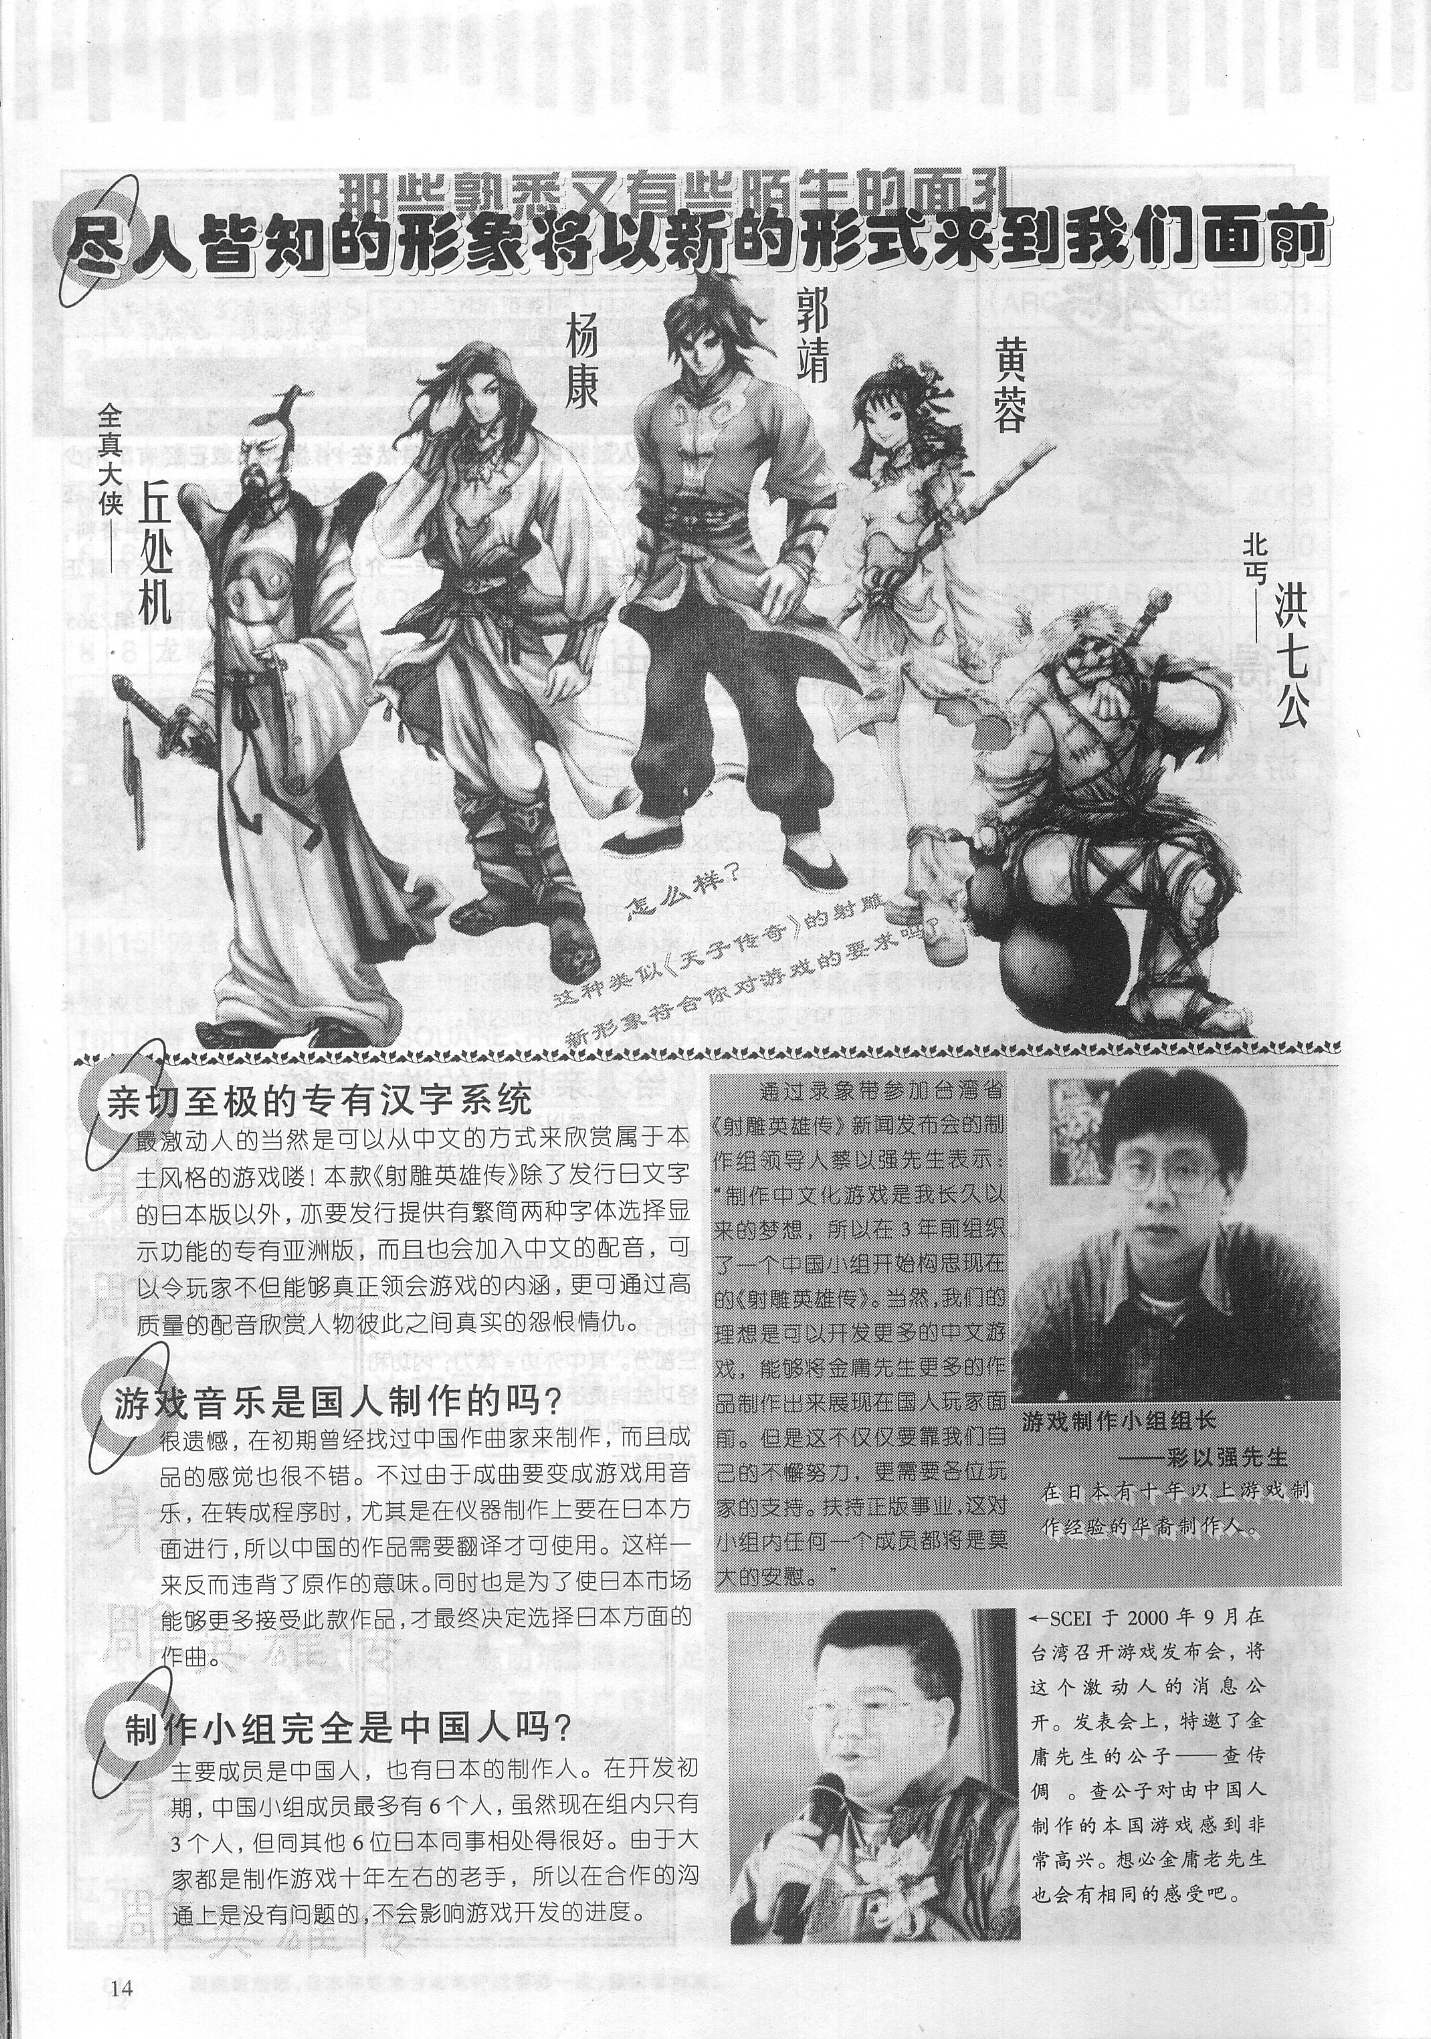 那些熟悉又有些陌生的面孔
尽人皆知的形象将以新的形式来到我们面前
全真大侠——
丘处机
杨康
郭靖
黄蓉
北丐——
洪七公
怎么样？
这种类似《天子传奇》的射雕
新形象符合你对游戏的要求吗？
亲切至极的专有汉字系统
最激动人的当然是可以从中文的方式来欣赏属于本
土风格的游戏喽！本款《射雕英雄传》除了发行日文字
的日本版以外，亦要发行提供有繁简两种字体选择显
示功能的专有亚洲版，而且也会加入中文的配音，可
以令玩家不但能够真正领会游戏的内涵，更可通过高
质量的配音欣赏人物彼此之间真实的怨恨情仇。
游戏音乐是国人制作的吗？
很遗憾，在初期曾经找过中国作曲家来制作，而且成
品的感觉也很不错。不过由于成曲要变成游戏用音
乐，在转成程序时，尤其是在仪器制作上要在日本方
面进行，所以中国的作品需要翻译才可使用。这样一
来反而违背了原作的意味。同时也是为了使日本市场
能够更多接受此款作品，才最终决定选择日本方面的
作曲。
制作小组完全是中国人吗？
主要成员是中国人，也有日本的制作人。在开发初
期，中国小组成员最多有6个人，虽然现在组内只有
3个人，但同其他6位日本同事相处得很好。由于大
家都是制作游戏十年左右的老手，所以在合作的沟
通上是没有问题的，不会影响游戏开发的进度。
通过录象带参加台湾省
《射雕英雄传》新闻发布会的制
作组领导人蔡以强先生表示：
“制作中文化游戏是我长久以
来的梦想，所以在3年前组织
了一个中国小组开始构思现在
的《射雕英雄传》。当然，我们的
理想是可以开发更多的中文游
戏，能够将金庸先生更多的作
品制作出来展现在国人玩家面
前。但是这不仅仅要靠我们自
己的不懈努力，更需要各位玩
家的支持。扶持正版事业，这对
小组内任何一个成员都将是莫
大的安慰。”
游戏制作小组组长
——彩以强先生
在日本有十年以上游戏制
作经验的华裔制作人。
←SCEI于2000年9月在
台湾召开游戏发布会，将
这个激动人的消息公
开。发表会上，特邀了金
庸先生的公子——查传
倜。查公子对由中国人
制作的本国游戏感到非
常高兴。想必金庸老先生
也会有相同的感受吧。
14